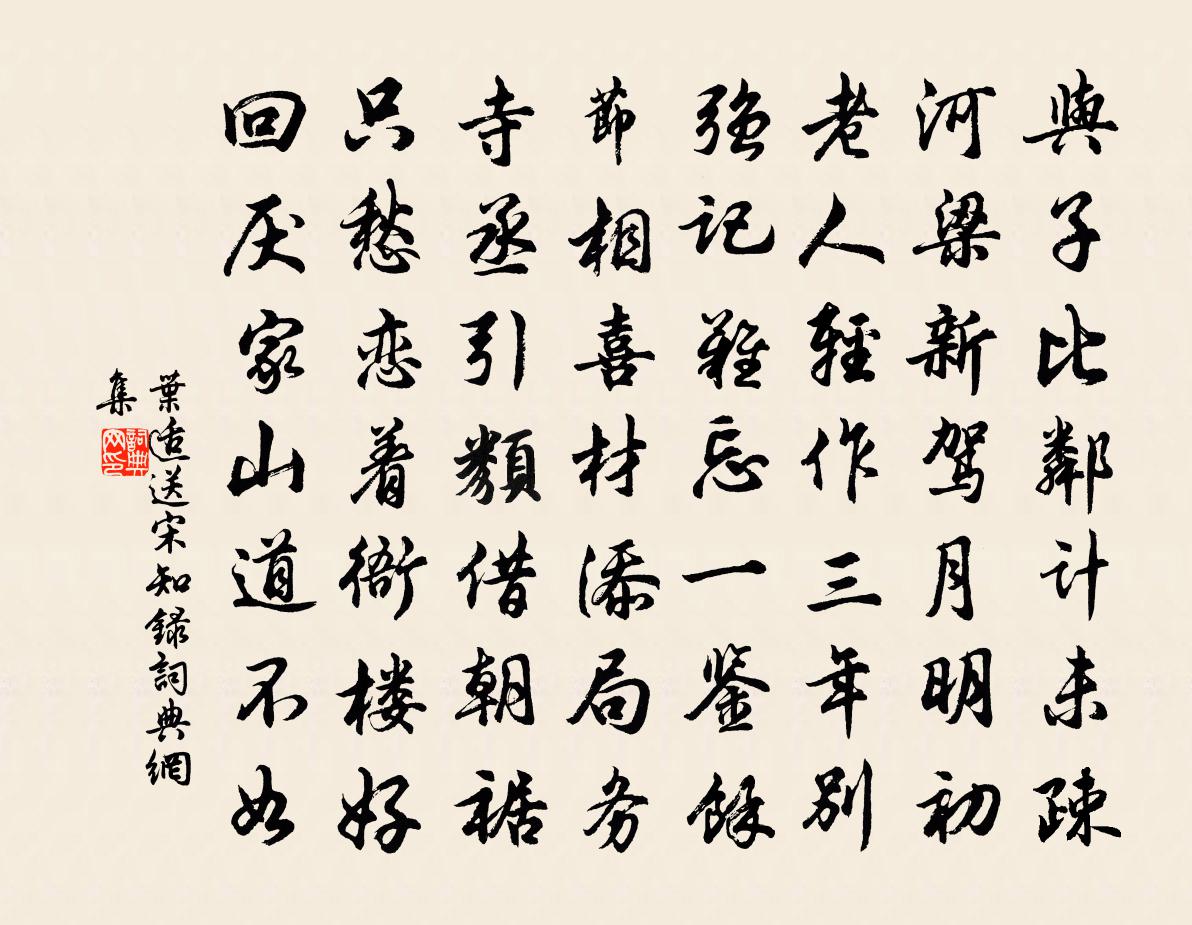 與子比鄰計未疎
河梁新駕月明初
老人輕作三年別
强記難忘一鉴餘
節相喜材添局务
寺丞引類借朝裾
只愁恋着衙楼好
回厌家山道不如
葉适送宋知録詞典網
集
詞典
网印